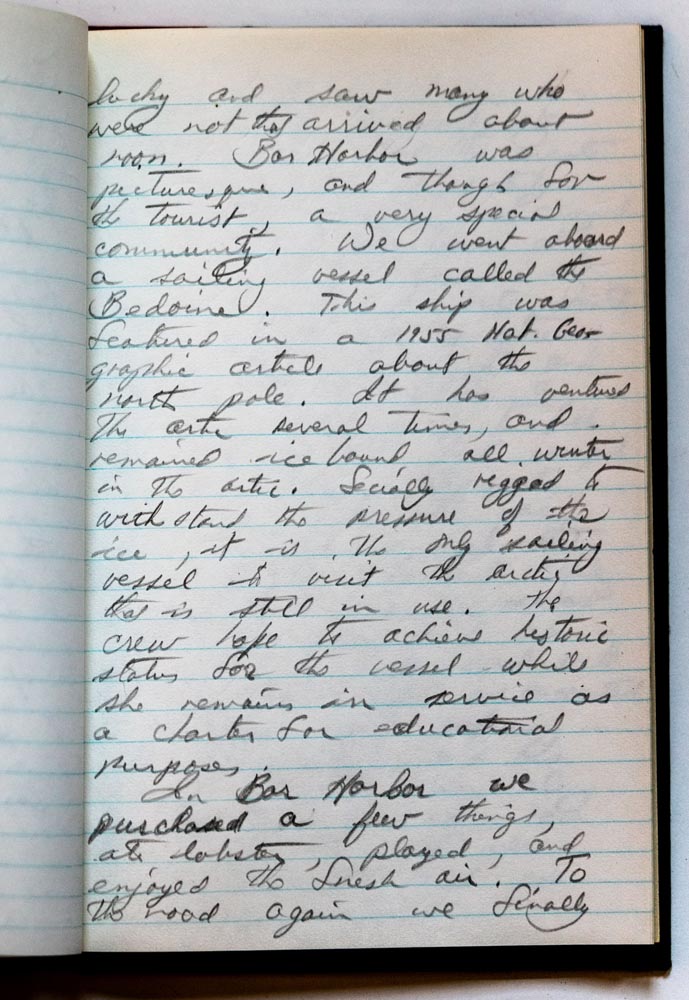 lucky and saw many who
were not that arrived about
noon. Bar Harbor was
picturesque, and though for
the tourist, a very special
community. We went aboard
a sailing vessel called the
Bedoine. This ship was
featured in a 1955 Nat. Geo-
graphic article about the
north pole. It has ventured
the artic several times, and
remained icebound all winter
in the artic. Secially rigged to
withstand the pressure of the
ice, it is the only sailing
vessel to visit the arctic
that is still in use. The
crew hope to achieve historic
status for the vessel while
she remains in service as
a charter for educational
purposes.
In Bar Harbor we
purchased a few things,
ate lobster, played, and
enjoyed the fresh air. To
the road again we finally